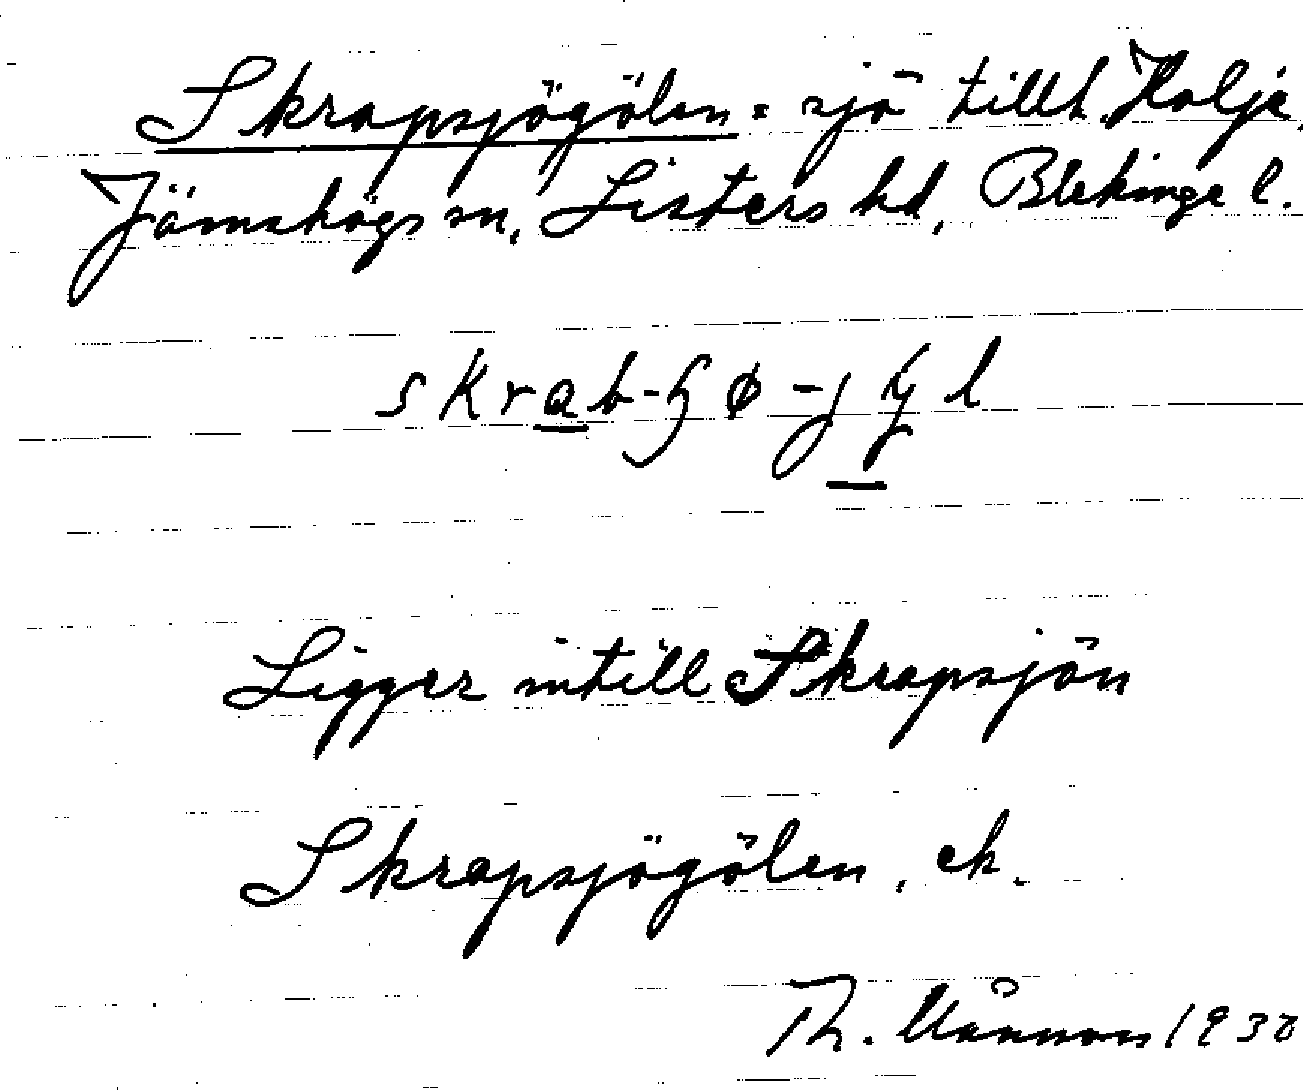 Skrapsjögölen = sjö tillh. Holje,
Jämshögs sn, Listers hd, Blekinge l.
skrab-ɧø-jyl
Ligger intill Skrapsjön
Skrapsjögölen, ek.
Th. 1930